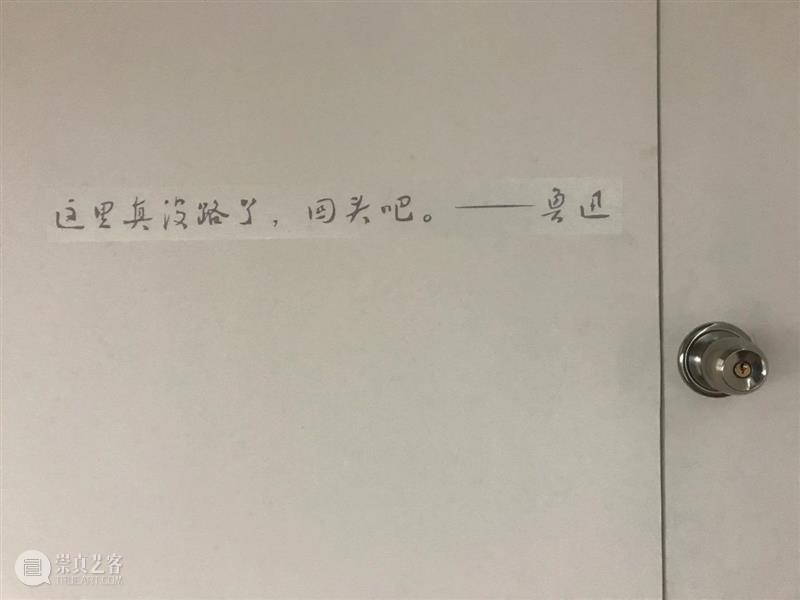 这里真没路了，回头吧。——鲁迅
崇真艺客
TRUEART.COM